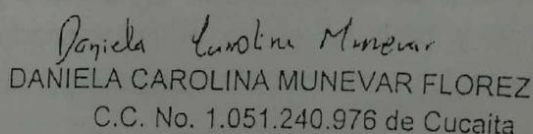 Daniela Carolina Munevar
DANIELA CAROLINA MUNEVAR FLOREZ
C.C. No. 1.051.240.976 de Cucaita